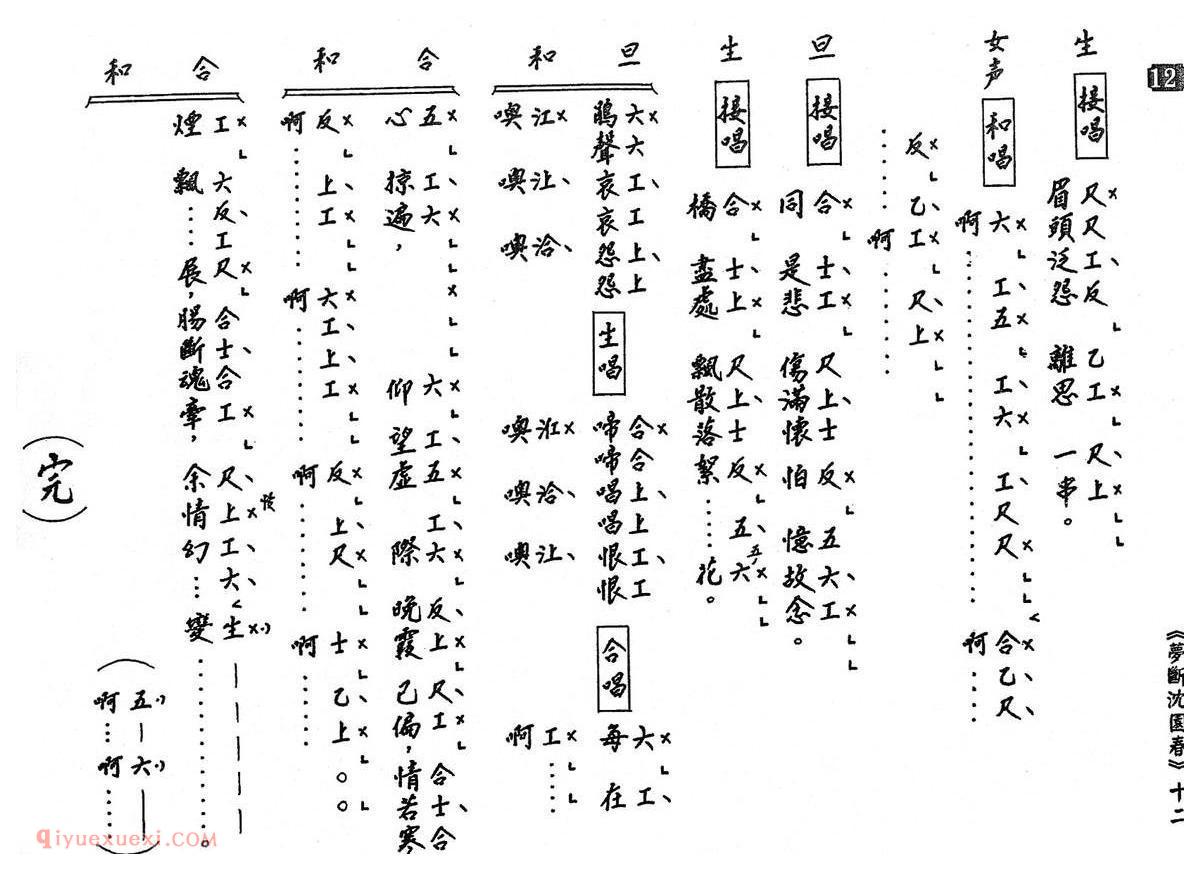 12
《夢斷沈園春》十二
生 接唱
尺尺工反 乙工 尺上
眉頭泛怨 離思 一串。
女声 和唱
六 工五 工六 工尺尺 合乙尺
啊 啊
反 乙工 尺上
啊
旦 接唱
合 士工 尺上士 反 五六工
同 是悲 傷滿懷 怕 憶故念。
生 接唱
合 士上 尺上士反 五五六
橋 盡處 飄散落絮……花。
旦
六六工工上上 生唱 合合上上工工 合唱 六 工
鵑聲哀哀怨怨 啼啼唱唱恨恨 每 在
和
噢 噢 噢 噢 噢 噢 啊
合
五 工六 六 工五工六 反上 尺工 合士合
心 掠遍, 仰 望虛 際 晚霞 己偏,情若寒
和
反 上工 六工上工 反上尺 士 乙上
啊 啊 啊 啊
合
工 六反工尺 合士合工 尺上工六 生
煙 飄……展,腸斷魂牽,余情幻…變………。
和
(五 — 六 —)
(啊…啊……)
(完)
qiyuexuexi.COM